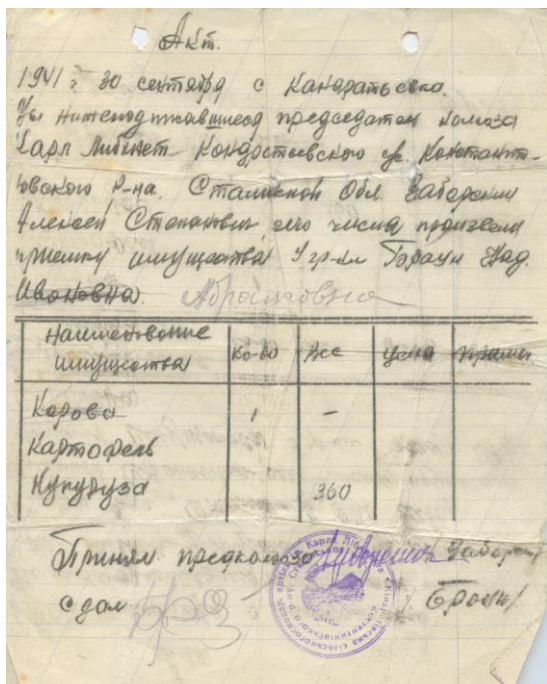 Акт.
1941 г 30 сентября с Кандратьевка.
Мы нижеподписавшиеся председатель колхоза
Карл Либкнет Кондратьевского с/с. Константи-
новского р-на. Сталинской Обл. Заборский
Алексей Степанович, сего числа произвели
приемку имущества у гр-ки Над.
Ивановна. Абрамовна
Наименование имущества Ко-во Вес Цена
Корова 1 -
Картофель
Кукуруза 360
Принял предколхоза
сдал